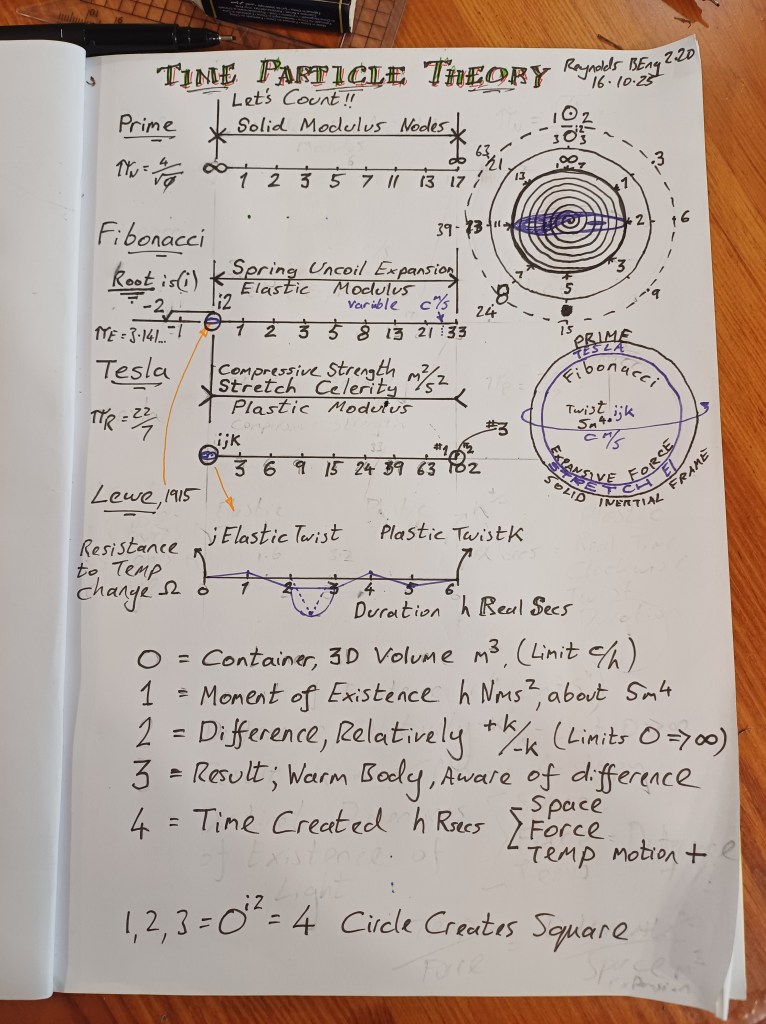 TIME PARTICLE THEORY
Reynolds BEng 2.20
16.10.25
Let's Count!!
Prime
Solid Modulus Nodes
∞ 1 2 3 5 7 11 13 17 ∞
Fibonacci
Root is (i)
Spring Uncoil Expansion
Elastic Modulus
variable c m/s
-2 -1 i2 1 2 3 5 8 13 21 33
πE = 3.141...
Tesla
Compressive Strength
Stretch Celerity m²/s²
Plastic Modulus
πR = 22/7
ijk 3 6 9 15 24 39 63 102
#1 #2 #3
Lewe, 1915
j Elastic Twist Plastic Twist K
Resistance
to Temp
change Ω
0 1 2 3 4 5 6
Duration h Real Secs
1 2
i2
3 3
∞
63 21 13 1 3
39 11 2 6
24 8 7 5 3 9
15
PRIME
TESLA
Fibonacci
Twist ijk
5m⁴
c m/s
EXPANSIVE FORCE
STRETCH EI
SOLID INERTIAL FRAME
0 = Container, 3D Volume m³, (Limit c/h)
1 = Moment of Existence h Nms², about 5m⁴
2 = Difference, Relatively +k/-k (Limits 0 => ∞)
3 = Result; Warm Body, Aware of difference
4 = Time Created h Rsecs
Space
Force
Temp motion +
1, 2, 3 = 0^i2 = 4 Circle Creates Square